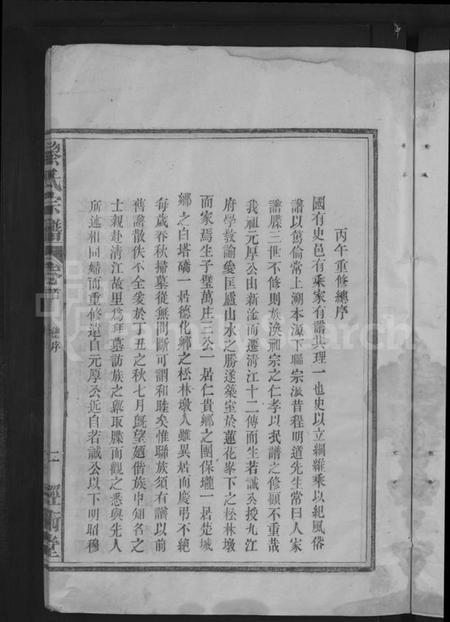 丙午重修總序
國有史邑有乘家有譜其理一也史以立綱維乘以紀風俗
譜以篤倫常上溯本源下聯宗派昔程明道先生常曰人家
譜牒三世不修則族渙祖宗之仁孝以泯譜之修顧不重哉
我祖元厚公由新淦而遷清江十二傳而生若誠公授九江
府學教諭愛匡廬山水之勝遂築室於蓮花峯下之松林墩
而家焉生子璧萬庄三公一居仁貴鄉之團保壠一居楚城
鄉之白塔橋一居德化鄉之松林墩人雖異居而慶弔不絕
每歲春秋掃墓從無間斷可謂和睦矣惟聯族須有譜以前
舊譜散佚不全爰於乙丑之秋七月既望廼偕族中知名之
士親赴清江故里爲拜墓訪族之舉取牒而觀之悉與先人
所述相同歸而重修遠自元厚公近自若誠公以下明昭穆
氏宗譜
總序
二